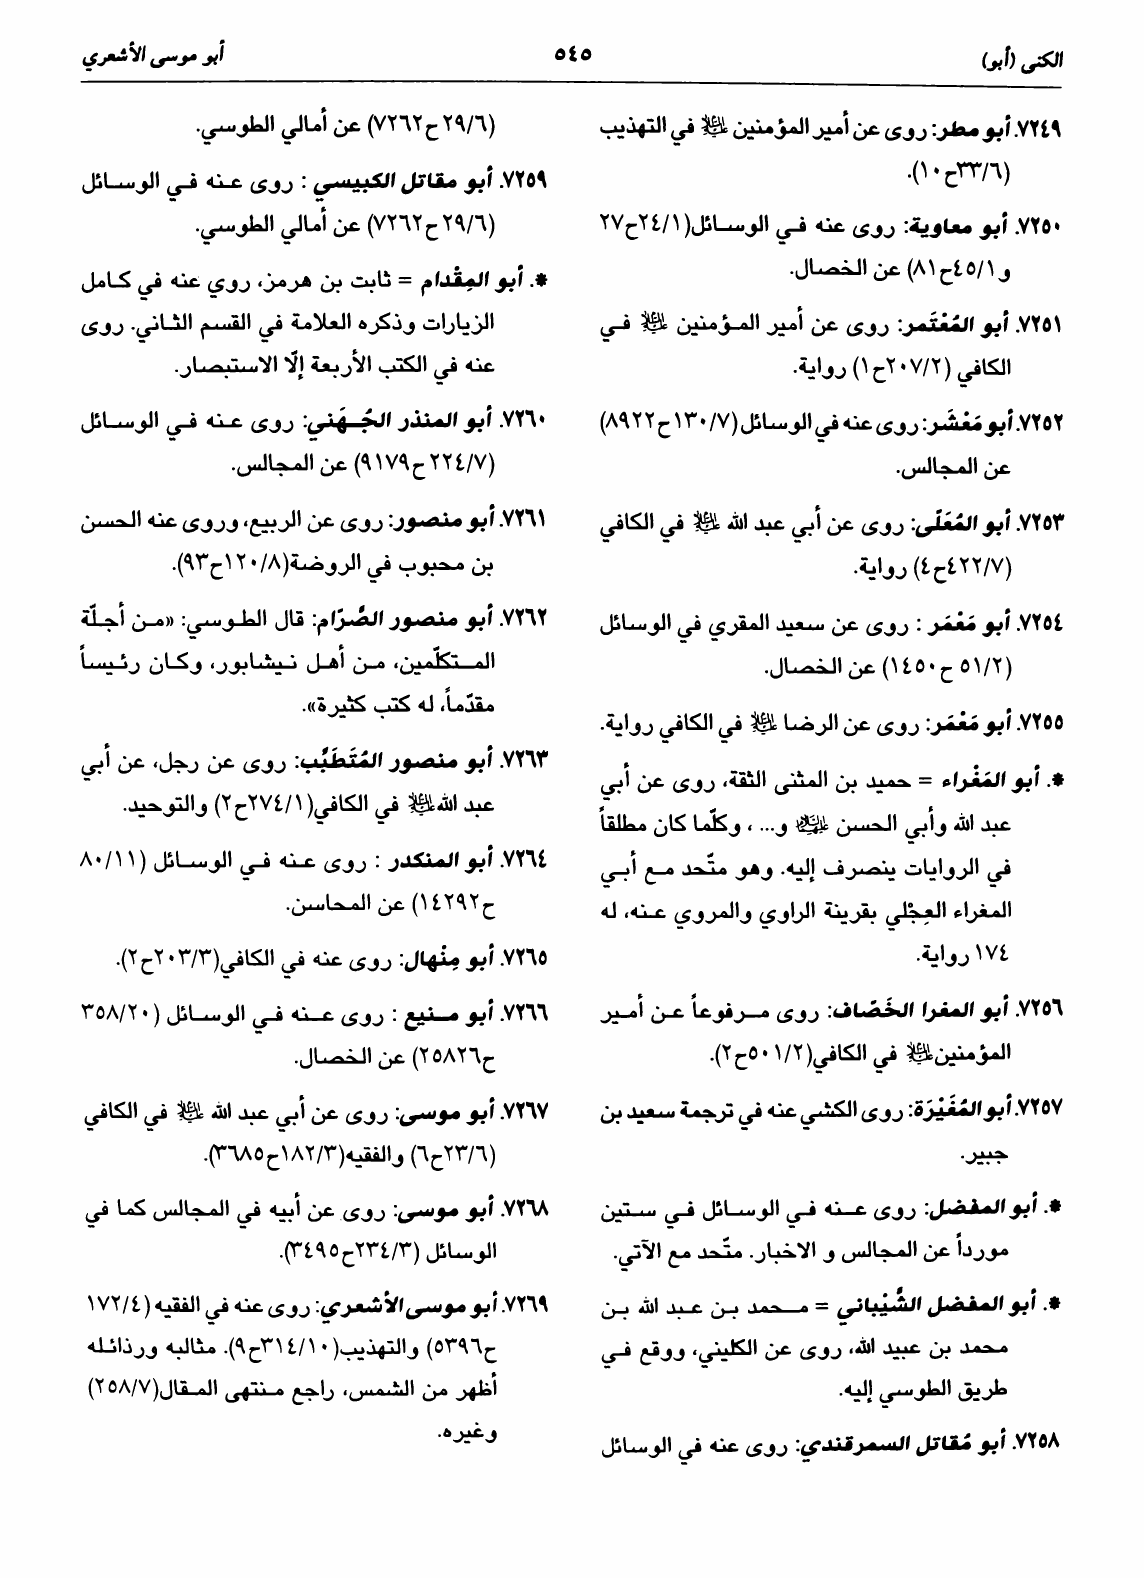 الكنى (أبو)
٥٤٥
أبو موسى الأشعري
٧٢٤٩. أبو مطر: روى عن أمير المؤمنين ﷷ في التهذيب
(٣٣/٦ح١٠).
٧٢٥٠. أبو معاوية: روى عنه في الوسائل(٢٤/١ح٢٧
و٤٥/١ح٨١) عن الخصال.
٧٢٥١. أبو المُعْتَمر: روى عن أمير المؤمنين ﷷ في
الكافي (٢٠٧/٢ح١) رواية.
٧٢٥٢. أبو مَعْشَر: روى عنه في الوسائل (١٣٠/٧ح٨٩٢٢)
عن المجالس.
٧٢٥٣. أبو المُعَلّى: روى عن أبي عبد الله ﷷ في الكافي
(٤٢٢/٧ح٤) رواية.
٧٢٥٤. أبو مَعْمَر : روى عن سعيد المقري في الوسائل
(٥١/٢ ح١٤٥٠) عن الخصال.
٧٢٥٥. أبو مَعْمَر: روى عن الرضا ﷷ في الكافي رواية.
*. أبو المَغْراء = حميد بن المثنى الثقة، روى عن أبي
عبد الله وأبي الحسن و... ، وكلّما كان مطلقاً
في الروايات ينصرف إليه. وهو متّحد مع أبي
المغراء العِجْلي بقرينة الراوي والمروي عنه، له
١٧٤ رواية.
٧٢٥٦. أبو المغرا الخَصّاف: روى مرفوعاً عن أمير
المؤمنين ﷷ في الكافي(٥٠١/٢ح٢).
٧٢٥٧. أبو المُغَيْرَة: روى الكشي عنه في ترجمة سعيد بن
جبير.
*. أبو المفضل: روى عنه في الوسائل في ستين
مورداً عن المجالس و الاخبار. متّحد مع الآتي.
*. أبو المفضل الشَّيْباني = محمد بن عبد الله بن
محمد بن عبيد الله، روى عن الكليني، ووقع في
طريق الطوسي إليه.
٧٢٥٨. أبو مُقاتل السمرقندي: روى عنه في الوسائل
(٢٩/٦ح٧٢٦٢) عن أمالي الطوسي.
٧٢٥٩. أبو مقاتل الكبيسي : روى عنه في الوسائل
(٢٩/٦ح٧٢٦٢) عن أمالي الطوسي.
*. أبو المِقْدام = ثابت بن هرمز، روي عنه في كامل
الزيارات وذكره العلامة في القسم الثاني. روى
عنه في الكتب الأربعة إلّا الاستبصار.
٧٢٦٠. أبو المنذر الجُهَني: روى عنه في الوسائل
(٢٢٤/٧ح٩١٧٩) عن المجالس.
٧٢٦١. أبو منصور: روى عن الربيع، وروى عنه الحسن
بن محبوب في الروضة(١٢٠/٨ح٩٣).
٧٢٦٢. أبو منصور الصَّرّام: قال الطوسي: «من أجلّة
المتكلّمين، من أهل نيشابور، وكان رئيساً
مقدّماً، له كتب كثيرة».
٧٢٦٣. أبو منصور المُتَطَبِّب: روى عن رجل، عن أبي
عبد الله ﷷ في الكافي(٢٧٤/١ح٢) والتوحيد.
٧٢٦٤. أبو المنكدر : روى عنه في الوسائل (٨٠/١١
ح١٤٢٩٢) عن المحاسن.
٧٢٦٥. أبو مِنْهال: روى عنه في الكافي(٢٠٣/٣ح٢).
٧٢٦٦. أبو منيع : روى عنه في الوسائل (٣٥٨/٢٠
ح٢٥٨٢٦) عن الخصال.
٧٢٦٧. أبو موسى: روى عن أبي عبد الله ﷷ في الكافي
(٢٣/٦ح٦) والفقيه(١٨٢/٣ح٣٦٨٥).
٧٢٦٨. أبو موسى: روى عن أبيه في المجالس كما في
الوسائل (٢٣٤/٣ح٣٤٩٥).
٧٢٦٩. أبو موسى الأشعري: روى عنه في الفقيه (١٧٢/٤
ح٥٣٩٦) والتهذيب(٣١٤/١٠ح٩). مثالبه ورذائله
أظهر من الشمس، راجع منتهى المقال(٢٥٨/٧)
وغيره.